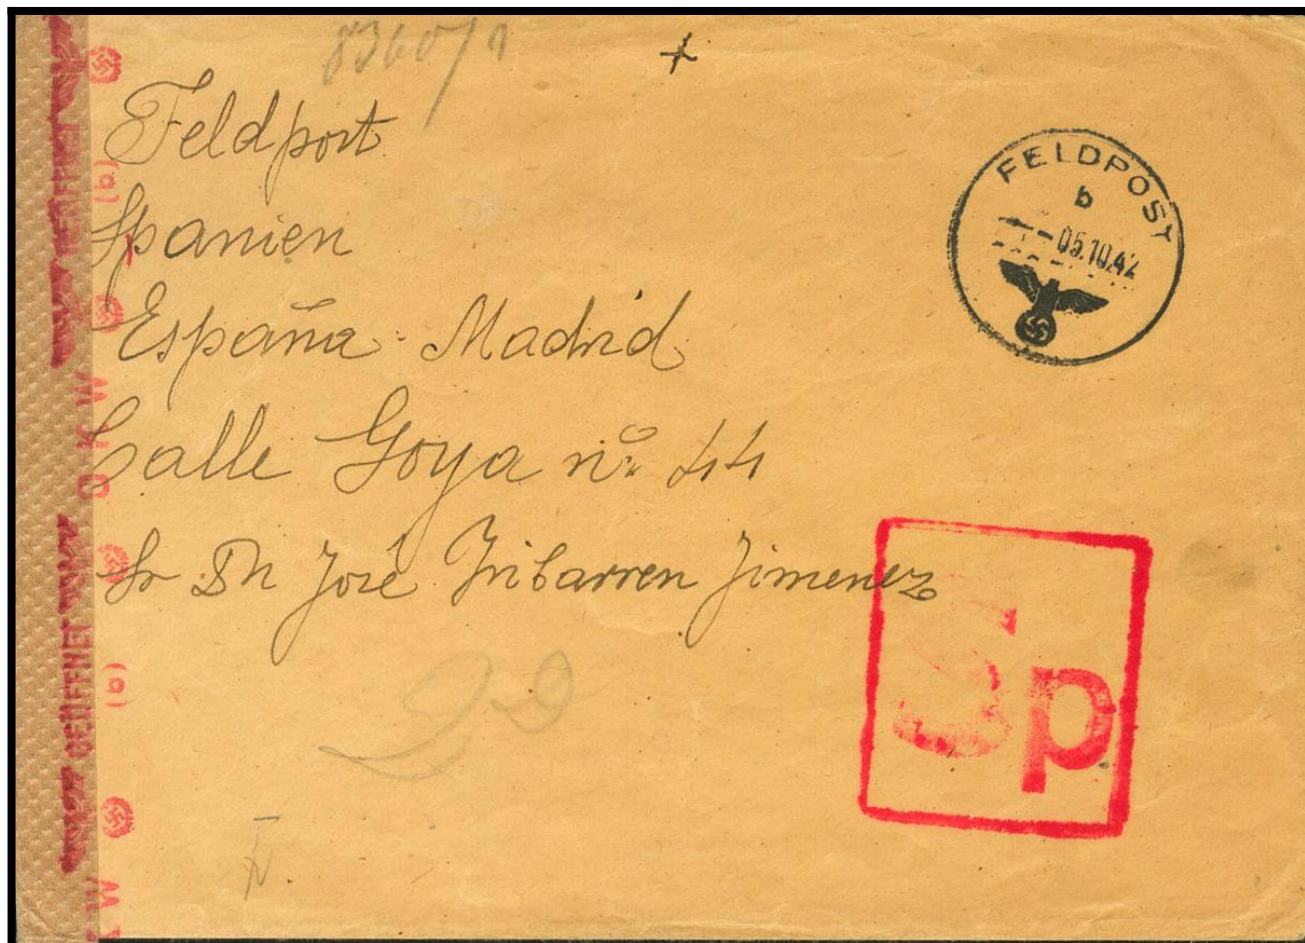 8360/1
Feldpost
Spanien
España. Madrid
Calle Goya nº 44
Sr Dn José Iribarren Jimenez
FELDPOST
b
05.10.42
Sp
GEÖFFNET
(b)
OKW
GEÖFFNET
(b)